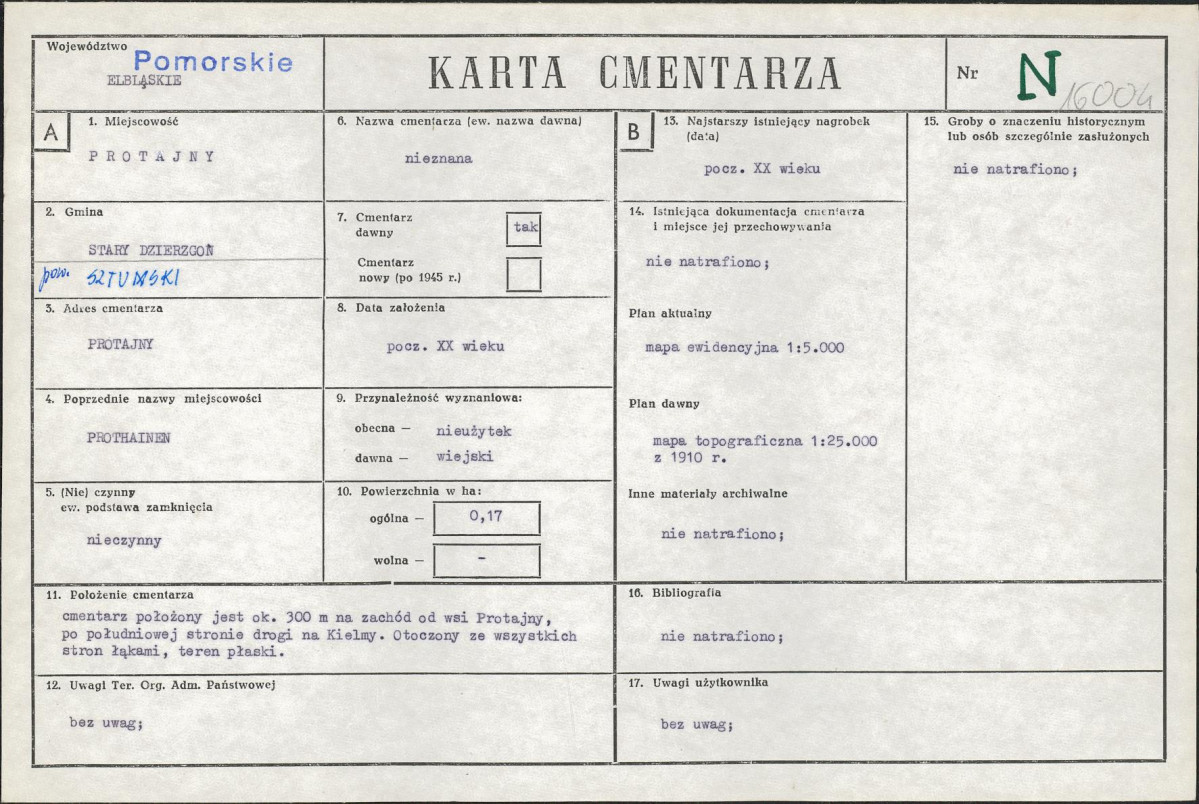 Województwo
Pomorskie
ELBLĄSKIE
KARTA CMENTARZA
Nr
N
16004
A
1. Miejscowość
PROTAJNY
2. Gmina
STARY DZIERZGOŃ
pow. SZTUMSKI
3. Adres cmentarza
PROTAJNY
4. Poprzednie nazwy miejscowości
PROTHAINEN
5. (Nie) czynny
ew. podstawa zamknięcia
nieczynny
6. Nazwa cmentarza (ew. nazwa dawna)
nieznana
7. Cmentarz
dawny
tak
Cmentarz
nowy (po 1945 r.)
8. Data założenia
pocz. XX wieku
9. Przynależność wyznaniowa:
obecna — nieużytek
dawna — wiejski
10. Powierzchnia w ha:
ogólna — 0,17
wolna — -
B
13. Najstarszy istniejący nagrobek
(data)
pocz. XX wieku
14. Istniejąca dokumentacja cmentarza
i miejsce jej przechowywania
nie natrafiono;
Plan aktualny
mapa ewidencyjna 1:5.000
Plan dawny
mapa topograficzna 1:25.000
z 1910 r.
Inne materiały archiwalne
nie natrafiono;
15. Groby o znaczeniu historycznym
lub osób szczególnie zasłużonych
nie natrafiono;
11. Położenie cmentarza
cmentarz położony jest ok. 300 m na zachód od wsi Protajny,
po południowej stronie drogi na Kielmy. Otoczony ze wszystkich
stron łąkami, teren płaski.
12. Uwagi Ter. Org. Adm. Państwowej
bez uwag;
16. Bibliografia
nie natrafiono;
17. Uwagi użytkownika
bez uwag;